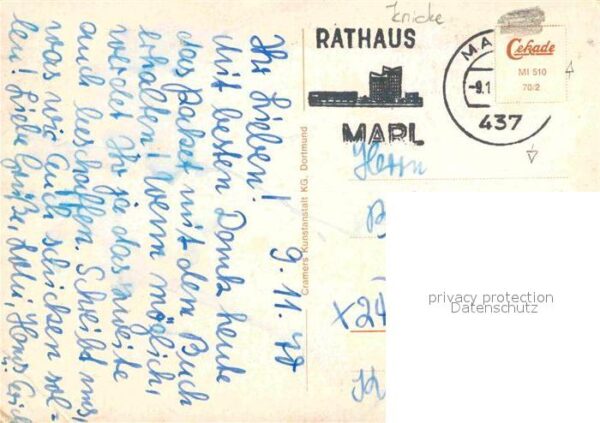 Knicke
RATHAUS
MARL
MA
-9.1
437
Cekade
MI 510
70/2
9. 11. 70
Ihr Lieben!
Mit besten Dank heute
das Paket mit dem Buch
erhalten! Wenn möglich,
werdet Ihr ja das zweite
auch beschaffen. Schreibt uns,
was wir Euch schicken sol-
len! Liebe Grüße, Hans
Cramers Kunstanstalt KG. Dortmund
Herrn
X24
privacy protection
Datenschutz